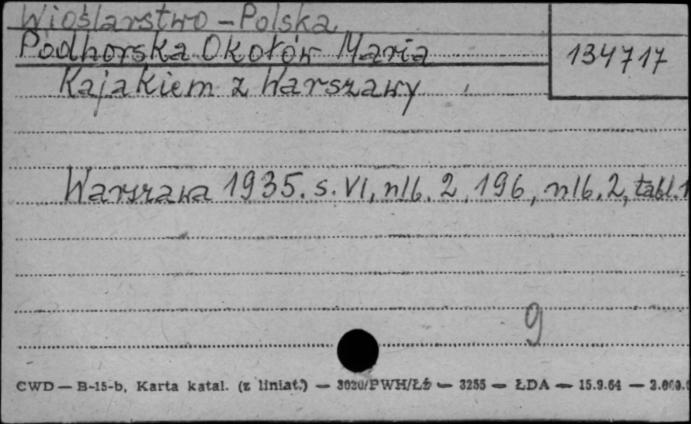 Wioślarstwo - Polska
Podhorska Okołów Maria
134717
Kajakiem z Warszawy
Warszawa 1935. s. VI, nlb. 2, 196, nlb. 2, tabl. 1
9
CWD — B-15-b, Karta katal. (z liniat.) — 3020/PWH/ŁŻ — 3255 — ŁDA — 15.9.64 — 2.000.0